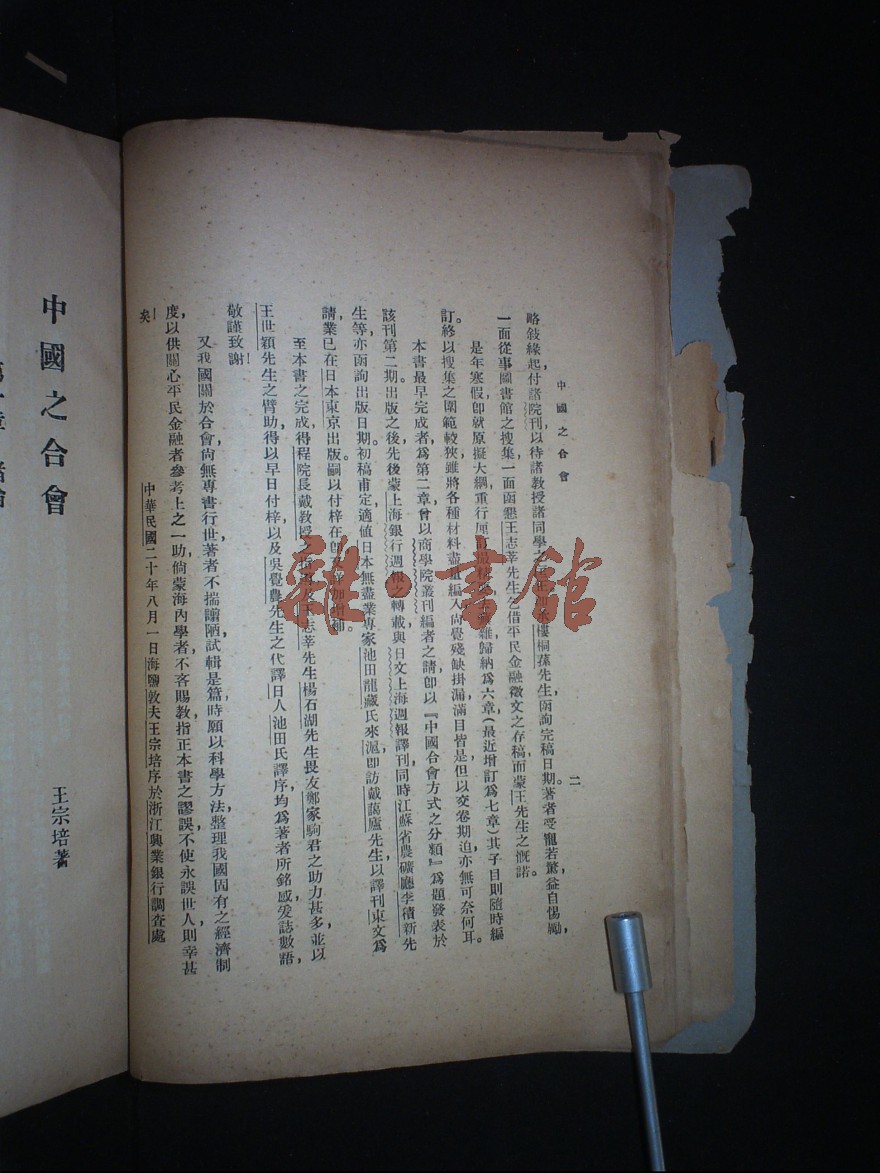 中國之合會
二
略敍緣起付諸院刊以待諸教授諸同學之樓桐蓀先生函詢完稿日期著者受寵若驚益自惕勵,
一面從事圖書館之搜集一面函懇王志莘先生乞借平民金融徵文之存稿而蒙王先生之慨諾。
是年寒假卽就原擬大綱重行厘訂歸納爲六章(最近增訂爲七章)其子目則隨時編
訂。終以搜集之圍範較狹雖將各種材料盡量編入尙覺殘缺掛漏滿目皆是但以交卷期迫亦無可奈何耳。
本書最早完成者爲第二章曾以商學院叢刊編者之請卽以『中國合會方式之分類』爲題發表於
該刊第二期。出版之後先後蒙上海銀行週報之轉載與日文上海週報譯刊同時江蘇省農礦廳李積新先
生等亦函詢出版日期。初稿甫定適値日本無盡業專家池田龍藏氏來滬卽訪戴藹廬先生以譯刊東文爲
請業已在日本東京出版嗣以付梓在卽
至本書之完成得程院長戴教授之指導及王志莘先生楊石湖先生畏友鄭家駒君之助力甚多並以
王世穎先生之臂助得以早日付梓以及吳覺農先生之代譯日人池田氏譯序均爲著者所銘感爰誌數語
敬謹致謝!
又我國關於合會尙無專書行世著者不揣譾陋試輯是篇時願以科學方法,整理我國固有之經濟制
度,以供關心平民金融者參考上之一助,倘蒙海內學者,不吝賜教指正本書之謬誤不使永誤世人,則幸甚
矣!
中華民國二十年八月一日海鹽敦夫王宗培序於浙江興業銀行調查處
雜·書館
中國之合會
王宗培著